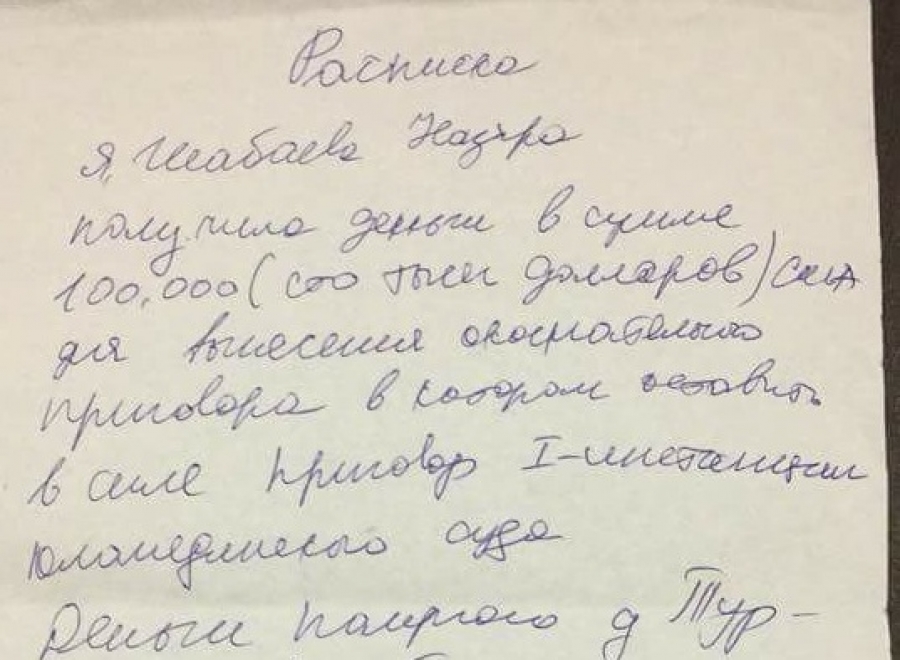 Расписка
Я, Шабаева Назира
получила деньги в сумме
100.000 (сто тысяч долларов) США
для вынесения
приговора в котором оставить
в силе приговор I-инстанции
суда
Деньги д Тур-